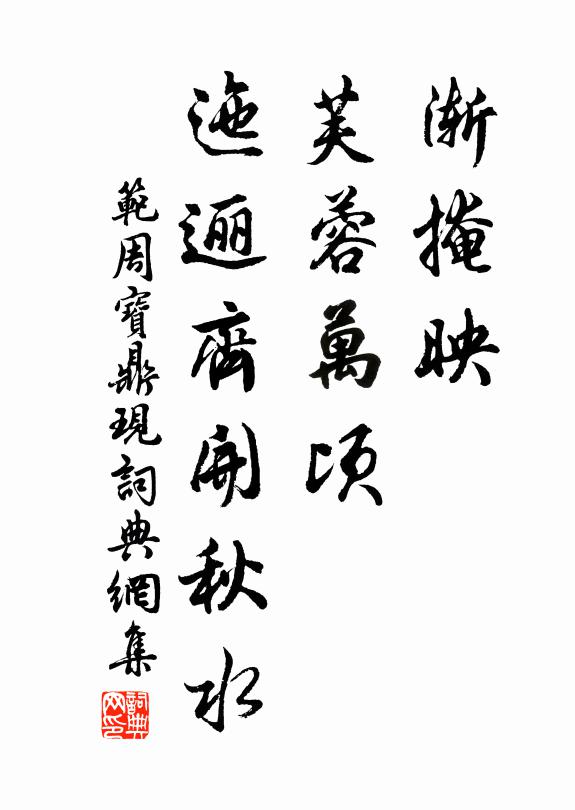 漸掩映
芙蓉萬頃
迤逦齊開秋水
範周寶鼎現詞典網集
詞典网印